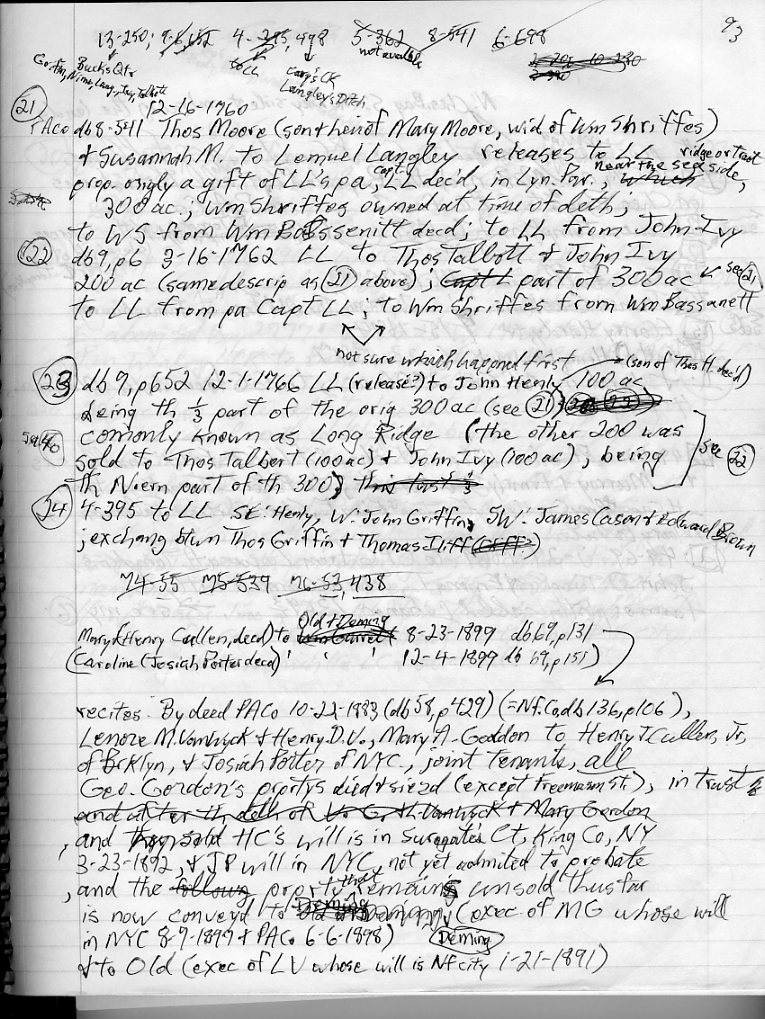 93
13-250; 9-6,652 4-395,498 5-362 8-541 6-698
not available
Bucks Qtr to LL Cary's Ck
Langley's Ditch
12-16-1760
(21) PACo db8-541 Thos Moore (son & heir of Mary Moore, wid. of Wm Shriffes)
& Susannah M. to Lemuel Langley releases to LL ridge or tract
prop. origly a gift of LL's pa, Capt LL dec'd, in Lyn. Par., near the sea side,
300 ac.; Wm Shriffes owned at time of deth,
to WS from Wm Bassenitt decd; to LL from John Ivy
(22) db9, p6 3-16-1762 LL to Thos Talbott & John Ivy
200 ac (same descrip as (21) above); Capt L part of 300 ac see (21)
to LL from pa Capt LL; to Wm Shriffes from Wm Bassanett
not sure which happned first
(23) db9, p652 12-1-1766 LL (release?) to John Henly 100 ac (son of Thos H. dec'd)
being th 1/3 part of the orig 300 ac (see (21))
see 40 comonly known as Long Ridge (the other 200 was
sold to Thos Talbert (100 ac) & John Ivy (100 ac), being see (22)
th Niern part of th 300)
(24) 4-395 to LL SE: Henly, W: John Griffin, SW: James Cason & Edward Brown
; exchang btwn Thos Griffin & Thomas Iliff
74-55 75-539 76-53, 438
Mary & Henry Cullen, decd) to Old & Deming 8-23-1899 db69, p131
(Caroline (Josiah Porter decd) " " " 12-4-1899 db 69, p151)
recites: By deed PACo 10-22-1883 (db58, p429) (=Nf. Co, db136, p106),
Lenore M. VanWyck & Henry D. V., Mary A. Goddon to Henry J Cullen, Jr,
of Brklyn, & Josiah Porter of NYC, joint tenants, all
Geo. Gordon's proptys died siezd (except Freemason St.), in trust
and after th deth of Vs G. th VanWyck & Mary Gordon
, and they sold HC's will is in Surogate's Ct, King Co, NY
3-23-1892, & JP will in NYC, not yet admited to probate
, and the follown proprty that remains unsold thus far
is now conveyd to Deming (exec of MG whose will
in NYC 8-9-1897 & PACo 6-6-1898) (Deming)
& to Old (exec of LV whose will is Nf city 1-21-1891)